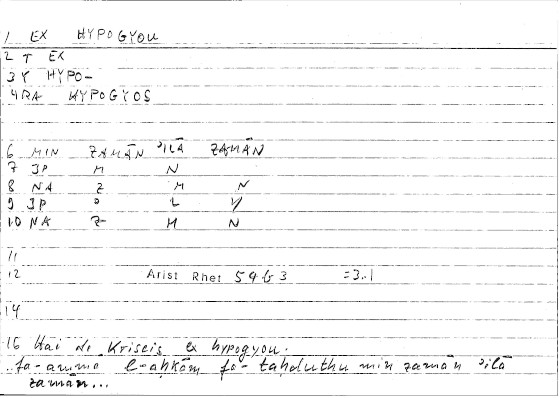 1 EX HYPOGYOU
2 T EX
3 Y HYPO-
4 RA HYPOGYOS
6 MIN ZAMĀN ʾILĀ ZAMĀN
7 JP M N
8 NA Z M N
9 JP L
10 NA Z M N
11
12 Arist Rhet 54b3 =3.1
14
15 Kai Kriseis ex hypogyou.
l-aḥkām fa- taḥduthu min zamān ʾilā
zamān...